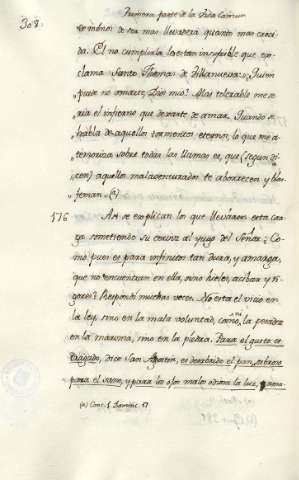 308. Primera parte de la Vida Comun
tumbres de ser mas llevadera quanto mas creci-
da. El no cumplirla les tan insufrible que ex-
clama Santo Thomas de Villanueva: ¿Quien
pude no amarte, Dios mio? Mas tolerable me se-
ria el infierno que dexarte de amar. Quando se
habla de aquellos tormentos eternos, lo que me a-
terroriza sobre todas las llamas es, que (segun di-
cen) aquellos malaventurados te aborrecen y blas-
feman. (a)
176 Asi se explican los que llevaron esta car-
ga sometiendo su cerviz al yugo del Señor; ¿Co-
mo pues es para infinitos tan dura, y amarga,
que no encuentran en ella, sino hieles, acibar y ri-
gores? Respondi muchas veces. No esta el vicio en
la ley, sino en la mala voluntad, como ni la pesadez
en la maroma, sino en la piedra. Para el gusto es-
tragado, dice San Agustin, es desabrido el pan, sabroso
para el sano, y para los ojos malos odiosa la luz,
(a) Conc. 1. Domin. 17